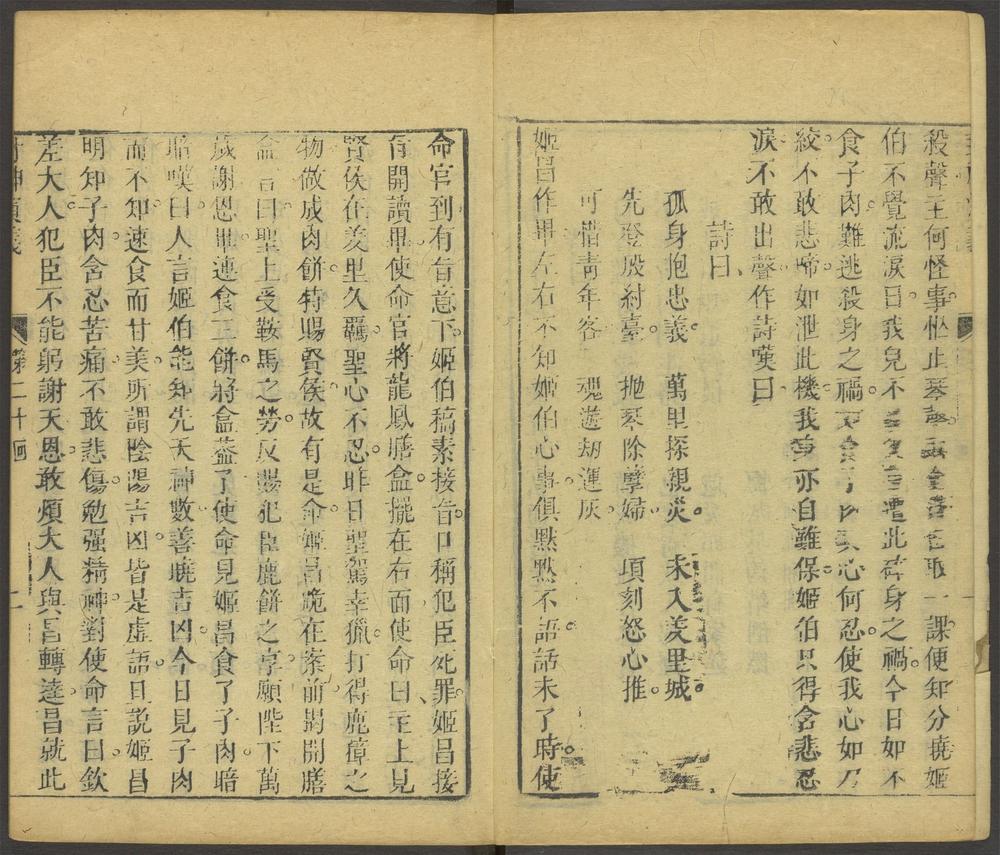 殺聲主何怪事忙止琴聲取一課便知分曉姬
伯不覺流淚曰我兒不遭此碎身之禍今日如不
食子肉難逃殺身之禍心何忍使我心如刀
絞不敢悲啼如泄此機我身亦自難保姬伯只得含悲忍
淚不敢出聲作詩嘆曰
詩曰
孤身抱忠義 萬里探親災 未入羑里城
先登殷紂臺 抛琴除孽婦 項刻怒心推
可惜青年客 魂遊劫運灰
姬昌作畢左右不知姬伯心事俱默默不語話未了時使
命官到有旨意下姬伯稿素接旨口稱犯臣死罪姬昌接
旨開讀畢使命官將龍鳳膳盒擺在右面使命曰主上見
賢侯在羑里久羈聖心不忍昨日聖駕幸獵打得鹿獐之
物做成肉餅特賜賢侯故有是命姬昌跪在案前揭開膳
盒言曰聖上受鞍馬之勞反賜犯臣鹿餅之享願陛下萬
歲謝恩畢連食三餅將盒蓋了使命見姬昌食了子肉暗
暗嘆曰人言姬伯能知先天神數善曉吉凶今日見子肉
而不知速食而甘美所謂陰陽吉凶皆是虛語且說姬昌
明知子肉含忍苦痛不敢悲傷勉强精神對使命言曰欽
差大人犯臣不能躬謝天恩敢煩大人與昌轉達昌就此
封神演義 第二十回 二